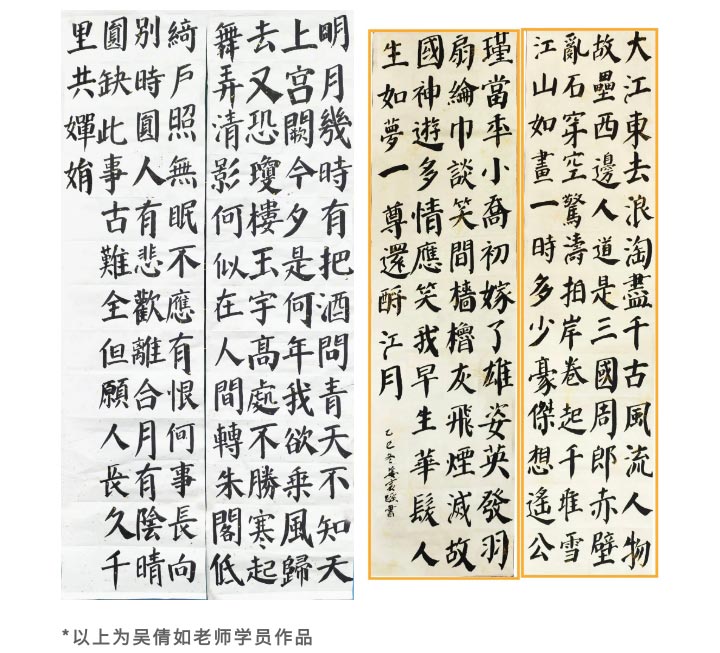 明月幾時有把酒問青天不知天
上宮闕今夕是何年我欲乘風歸
去又恐瓊樓玉宇高處不勝寒起
舞弄清影何似在人間轉朱閣低
綺戶照無眠不應有恨何事長向
別時圓人有悲歡離合月有陰晴
圓缺此事古難全但願人長久千
里共嬋娟
大江東去浪淘盡千古風流人物
故壘西邊人道是三國周郎赤壁
亂石穿空驚濤拍岸卷起千堆雪
江山如畫一時多少豪傑想遙公
瑾當年小喬初嫁了雄姿英發羽
扇綸巾談笑間檣櫓灰飛煙滅故
國神遊多情應笑我早生華髮人
生如夢一尊還酹江月
乙巳冬
*以上为吴倩如老师学员作品